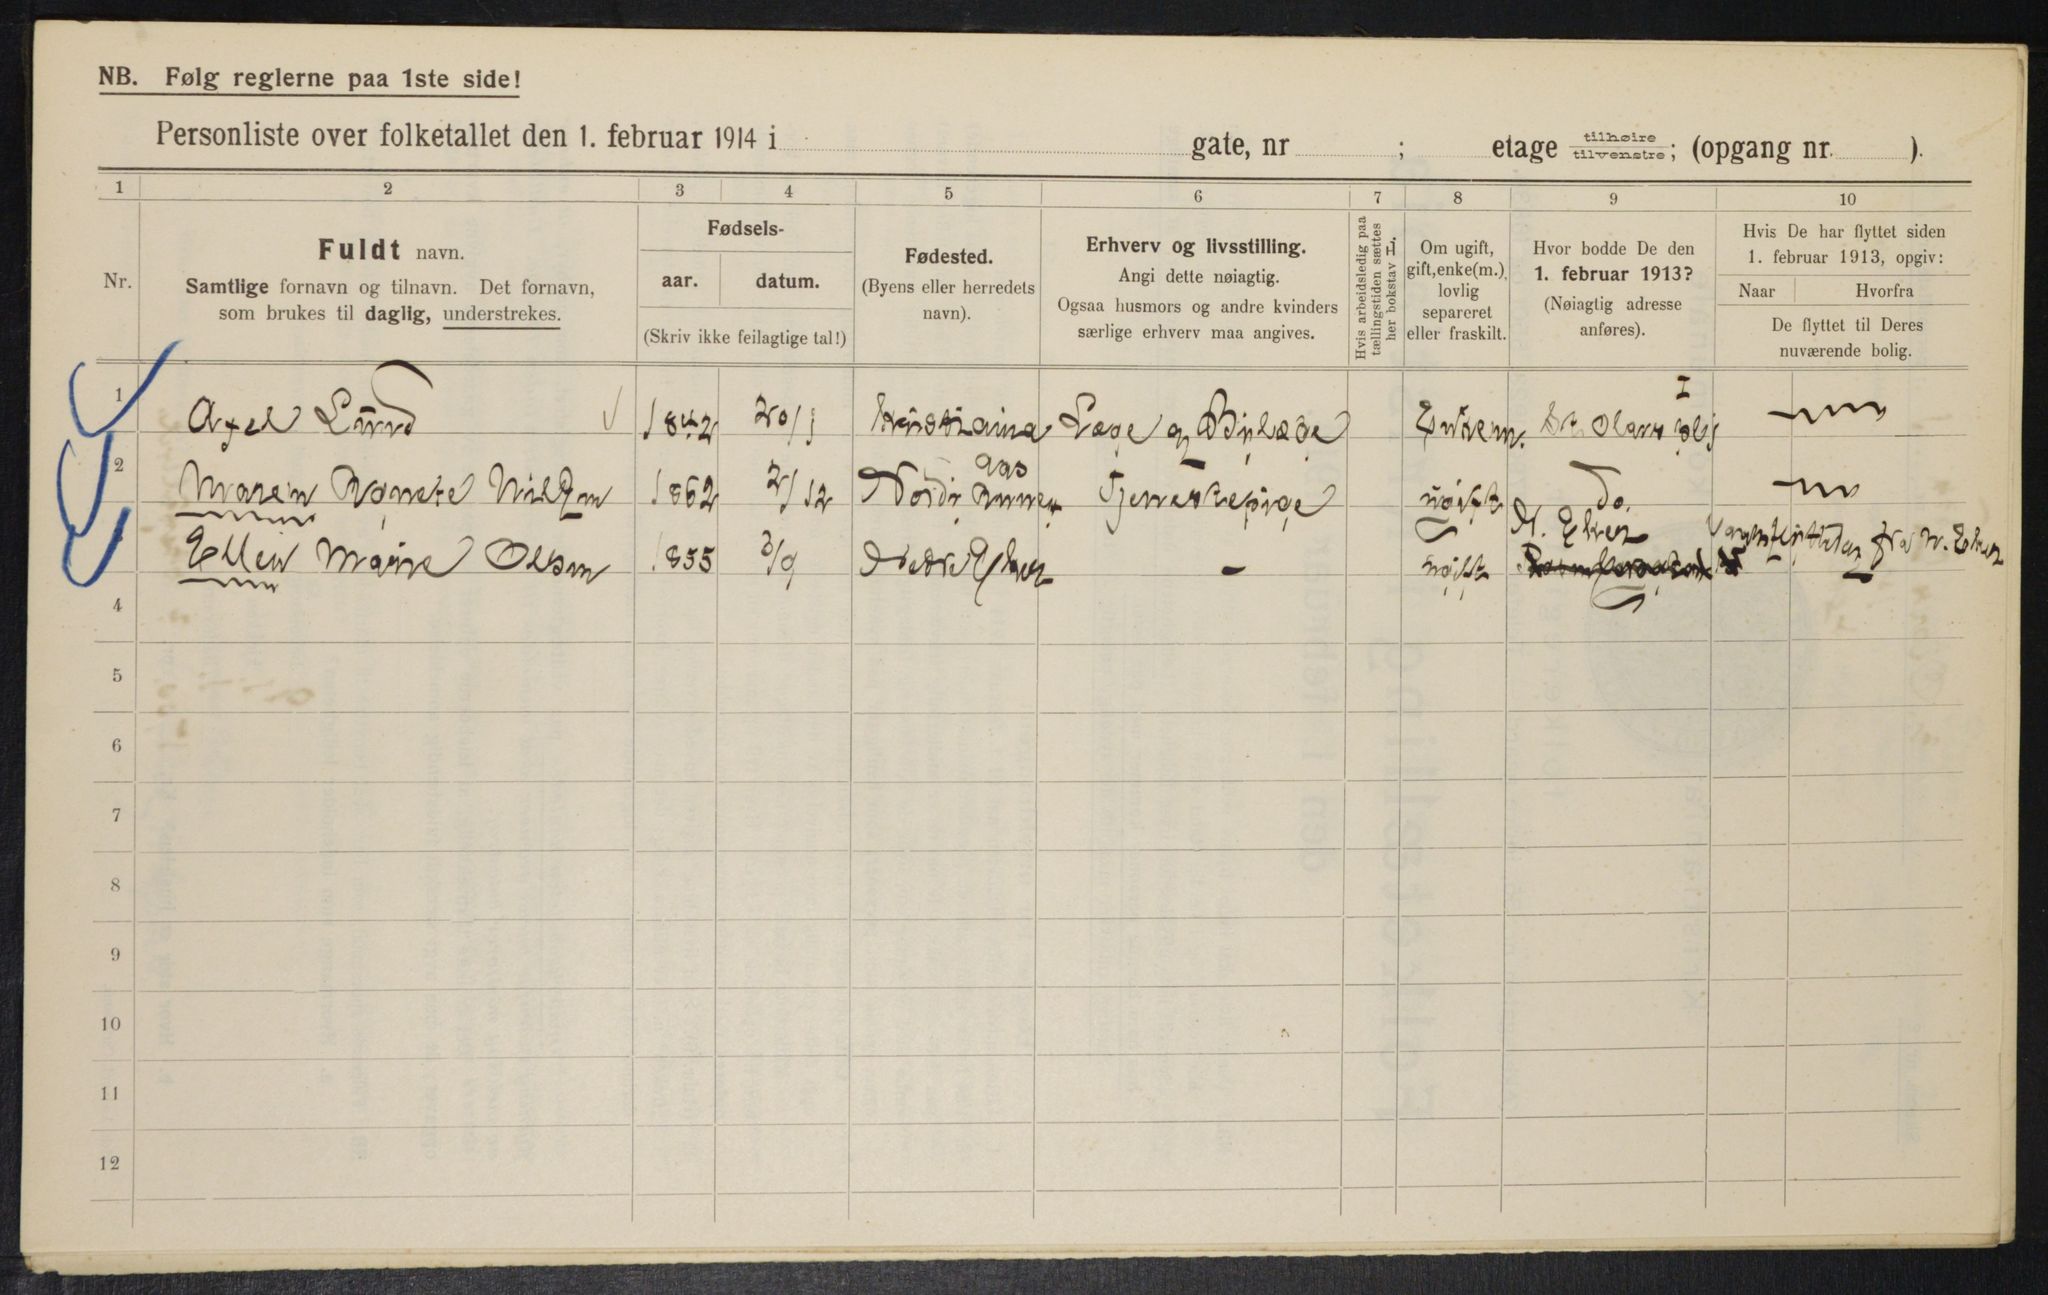 NB. Følg reglerne paa 1ste side!
Personliste over folketallet den 1. februar 1914 i gate, nr ; etage tilhøire tilvenstre; (opgang nr. ).
1 2 3 4 5 6 7 8 9 10
Nr.
Fuldt navn.
Samtlige fornavn og tilnavn. Det fornavn,
som brukes til daglig, understrekes.
Fødsels-
aar. datum.
(Skriv ikke feilagtige tal!)
Fødested.
(Byens eller herredets
navn).
Erhverv og livsstilling.
Angi dette nøiagtig.
Ogsaa husmors og andre kvinders
særlige erhverv maa angives.
Hvis arbeidsledig paa
tællingstiden sættes
her bokstav H.
Om ugift,
gift, enke(m.),
lovlig
separeret
eller fraskilt.
Hvor bodde De den
1. februar 1913?
(Nøiagtig adresse
anføres).
Hvis De har flyttet siden
1. februar 1913, opgiv:
Naar Hvorfra
De flyttet til Deres
nuværende bolig.
1 Axel Lund 1842 20/1 Kristiania Læge og Bylæge Enkem. St. Olavs
2 Maren 1862 2/12 Nordre Aas Tjenestepige ugift do.
Ellen Marie Olsen 1855 3/9 Nedre Eker - ugift N. Eker fra N. Eker
4
5
6
7
8
9
10
11
12